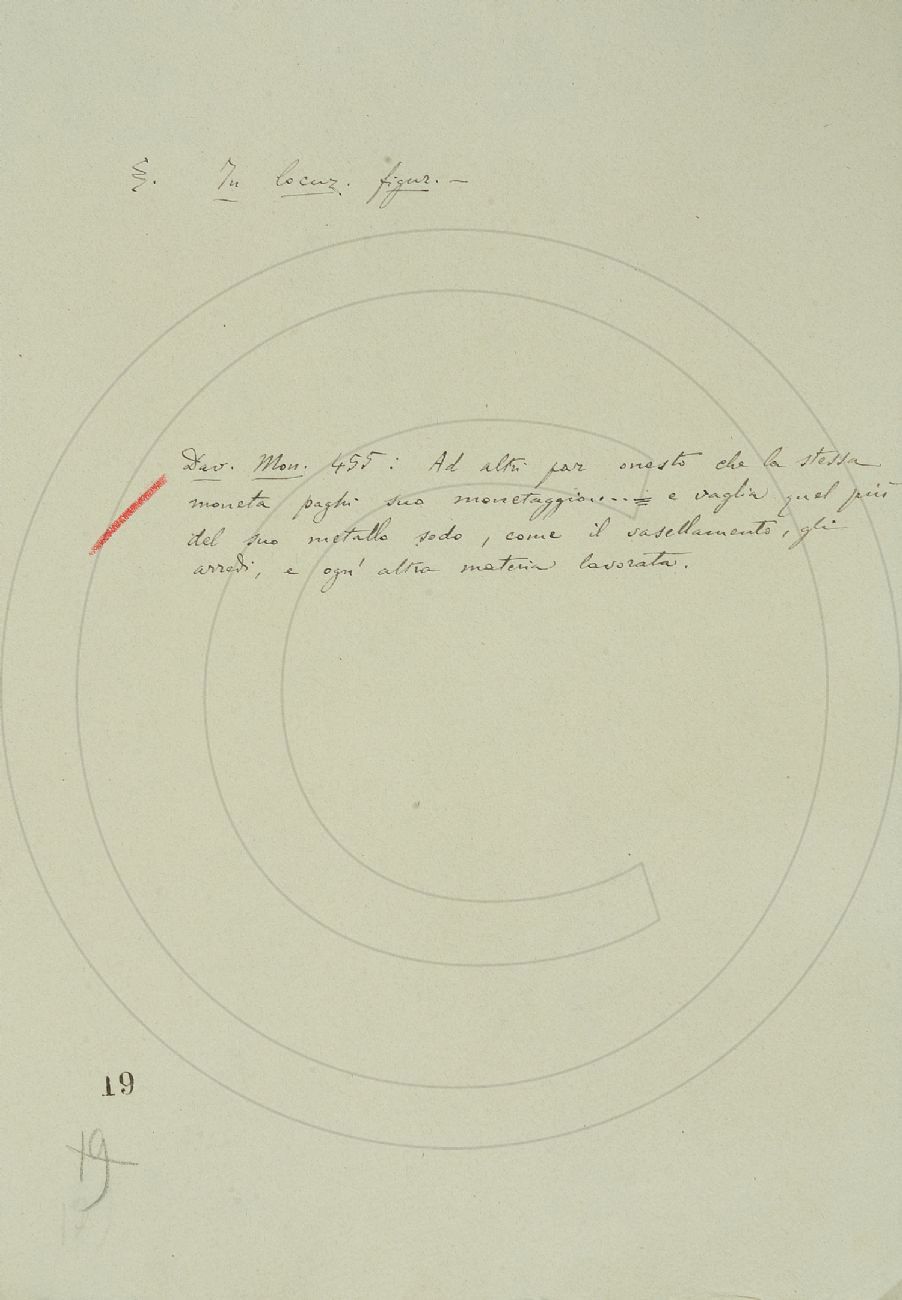 §. In locuz. figur. —
Dav. Mon. 455: Ad altri par onesto che la stessa
moneta paghi suo monetaggio.... e vaglia quel più
del suo metallo sodo, come il vasellamento, gli
arredi, e ogn' altra materia lavorata.
19
19